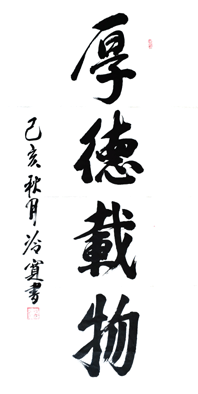 厚德載物
己亥秋月冷寬書